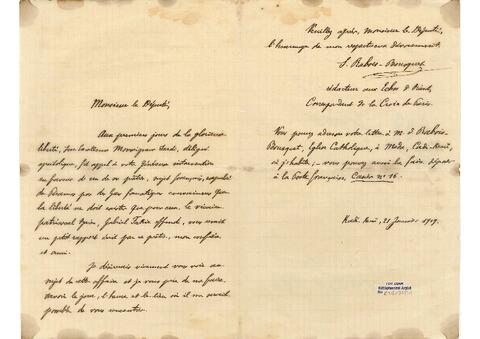 Monsieur le Député,
Aux premiers jours de la glorieuse
liberté, Son Excellence Monseigneur Sardi, délégué
apostolique, fit appel à votre généreuse intervention
en faveur d'un de ses prêtres, sujet français,
par des gens fanatiques convaincus que
la liberté ne doit exister que pour eux. Le vicaire
patriarcal Syrien, Gabriel Takia vous remit
un petit rapport écrit par ce prêtre, mon
et ami.
Je désirerais vivement vous voir au
sujet de cette affaire et je vous prie de me faire
savoir le jour, l'heure et le lieu où il me serait
possible de vous rencontrer.
Veuillez agréer, Monsieur le Député,
l'hommage de mon respectueux dévouement.
S. Rabois-Bousquet
rédacteur aux Echos d'Orient,
Correspondant de la Croix de Paris.
Vous pouvez adresser votre lettre à M. S. Rabois-
Bousquet, Eglise Catholique, à Moda, Cadi-Keui,
où j'habite; - vous pouvez aussi la faire déposer
à la Poste française, Casier No 16.
Kadi-Keui, 25 Janvier 1909.